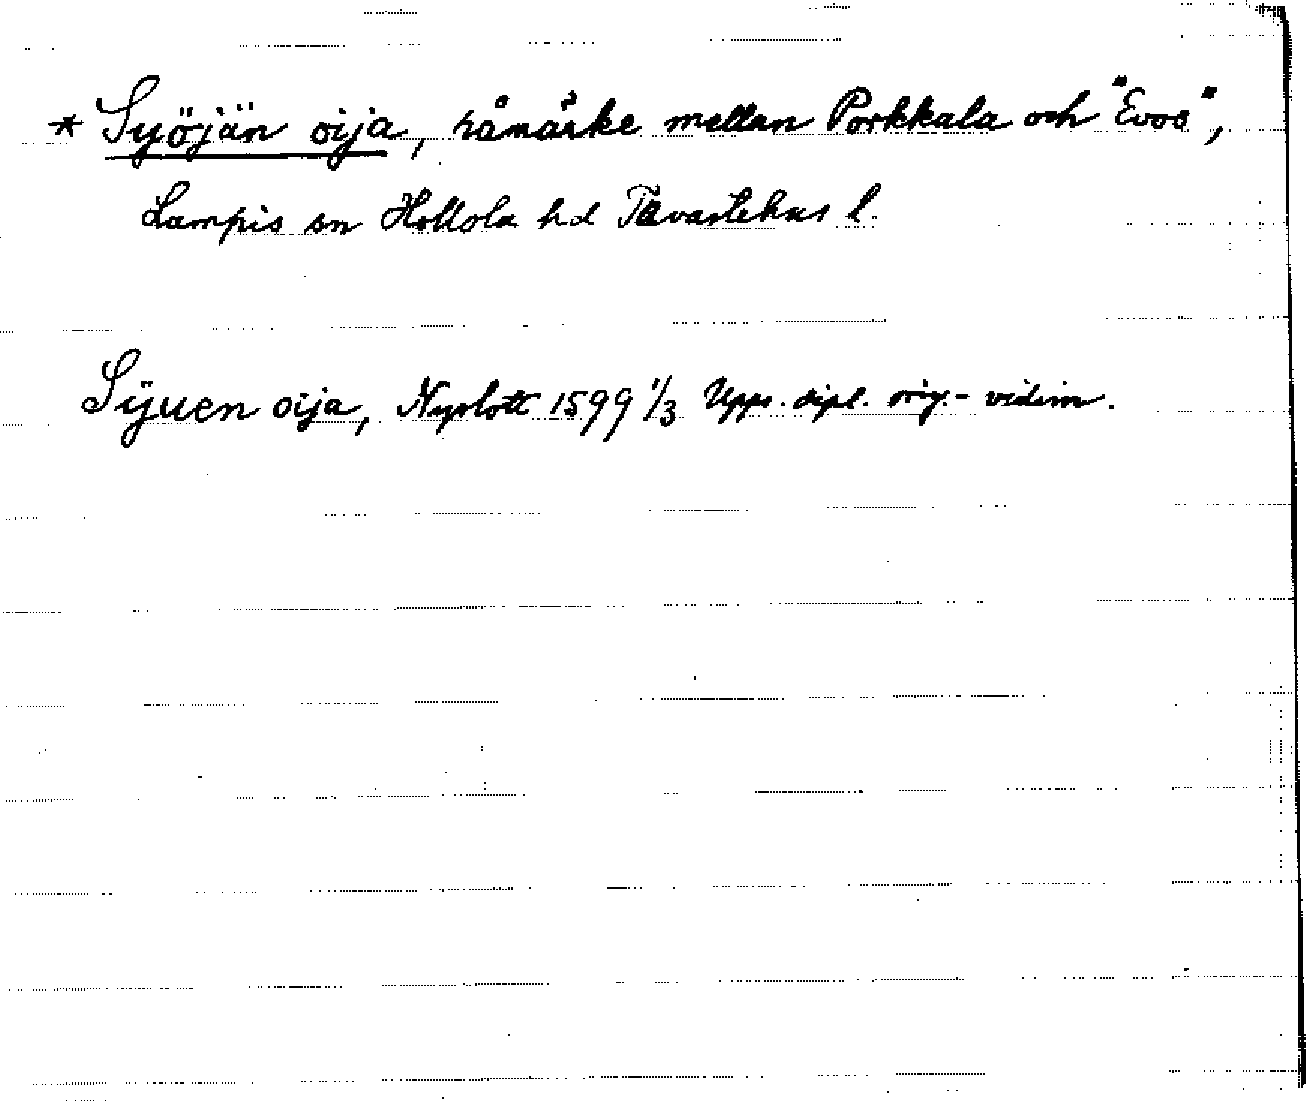 * Syöjän oija, råmärke mellan Porkkala och "Evoo",
Lampis sn Hollola hd Tavastehus l.
Syuen oija, Nyslott 1599 1/3 Upps. dipl. orig.- vidim.